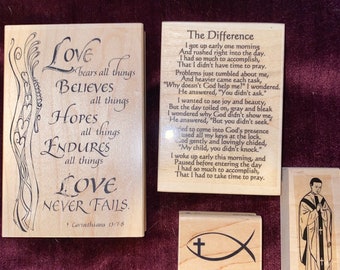 Love
bears all things
Believes
all things
Hopes
all things
Endures
all things
Love
Never Fails.
Corinthians 13:7-8
The Difference
I got up early one morning
And rushed right into the day.
I had so much to accomplish,
That I didn't have time to pray.
Problems just tumbled about me,
And heavier came each task,
"Why doesn't God help me?" I wondered.
He answered, "You didn't ask."
I wanted to see joy and beauty,
But the day toiled on, gray and bleak
I wondered why God didn't show me,
He answered, "But you didn't seek."
to come into God's presence
used all my keys at the lock.
God gently and lovingly chided,
"My child, you didn't knock."
I woke up early this morning, and
Paused before entering the day
I had so much to accomplish,
That I had to take time to pray.